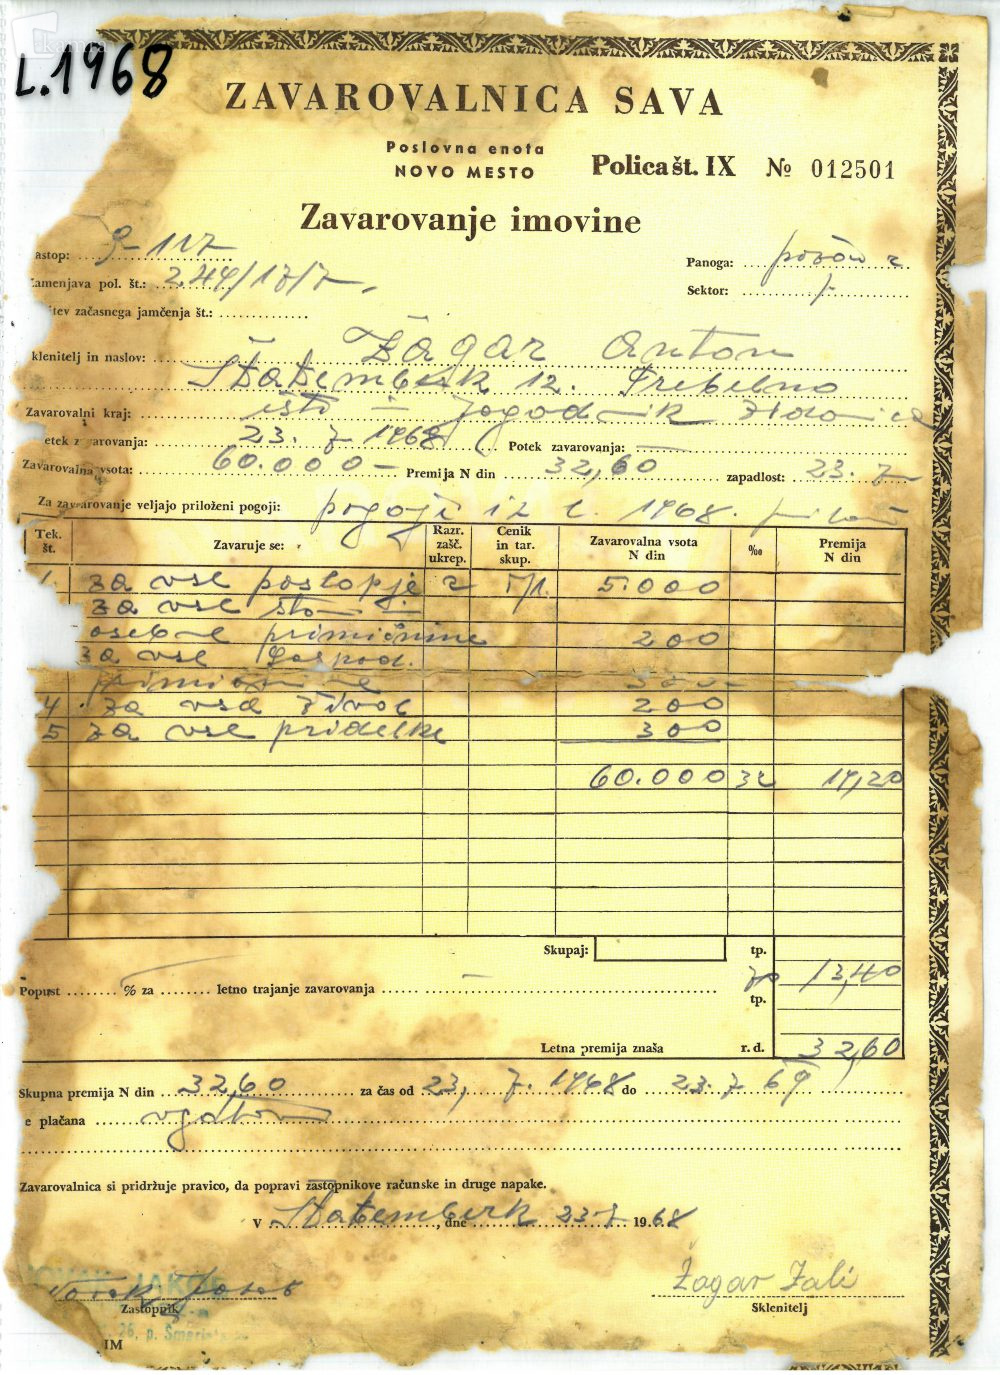 L.1968
ZAVAROVALNICA SAVA
Poslovna enota
NOVO MESTO
Polica št. IX № 012501
Zavarovanje imovine
astop: 9-117
Panoga: požar
amenjava pol. št.: 244/17/7
Sektor:
itev začasnega jamčenja št.:
klenitelj in naslov: Žagar Anton
Štatemberk 12. Trebelno
Zavarovalni kraj: isto - Jagodnik zidanica
etek zavarovanja: 23. 7 1968 Potek zavarovanja: —
Zavarovalna vsota: 60.000 — Premija N din 32,60 zapadlost: 23. 7
Za zavarovanje veljajo priloženi pogoji: pogoji iz l. 1968.
Tek. št. Zavaruje se: Razr. zašč. ukrep. Cenik in tar. skup. Zavarovalna vsota N din ‰ Premija N din
1. za vse poslopje 2 5.000
za vse stan.
osebne primičnine 200
za vse gospod.
primičnine
4 za vso živo 200
5 za vse pridelke 300
60.000 32 19,20
Skupaj: tp.
70 13,40
Popust % za letno trajanje zavarovanja — tp.
Letna premija znaša r. d. 32,60
Skupna premija N din 32,60 za čas od 23. 7. 1968 do 23. 7 69
e plačana
Zavarovalnica si pridržuje pravico, da popravi zastopnikove računske in druge napake.
V Štatemberk, dne 23 7 1968
Žagar Zali
Zastopnik
Sklenitelj
IM